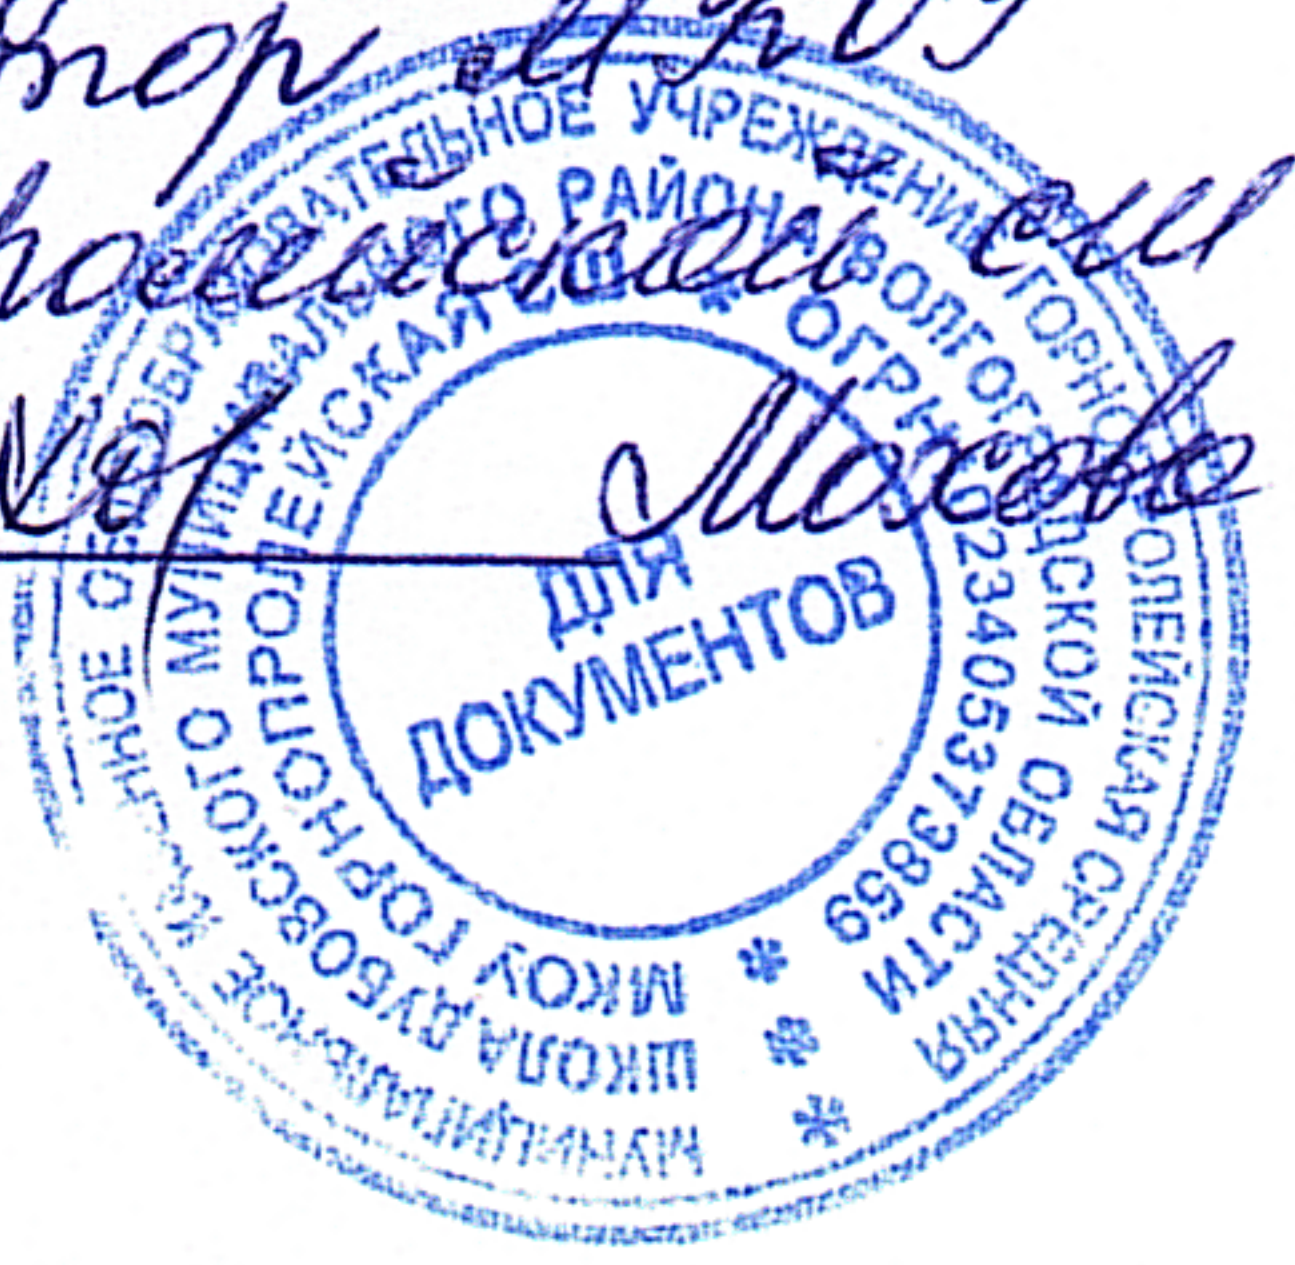 МКОУ
сш
Мохова
МУНИЦИПАЛЬНОЕ КАЗЕННОЕ ОБЩЕОБРАЗОВАТЕЛЬНОЕ УЧРЕЖДЕНИЕ ГОРНОПРОЛЕЙСКАЯ СРЕДНЯЯ
ШКОЛА ДУБОВСКОГО МУНИЦИПАЛЬНОГО РАЙОНА ВОЛГОГРАДСКОЙ ОБЛАСТИ
МКОУ ГОРНОПРОЛЕЙСКАЯ СШ * ОГРН 1023405373859
ДЛЯ
ДОКУМЕНТОВ